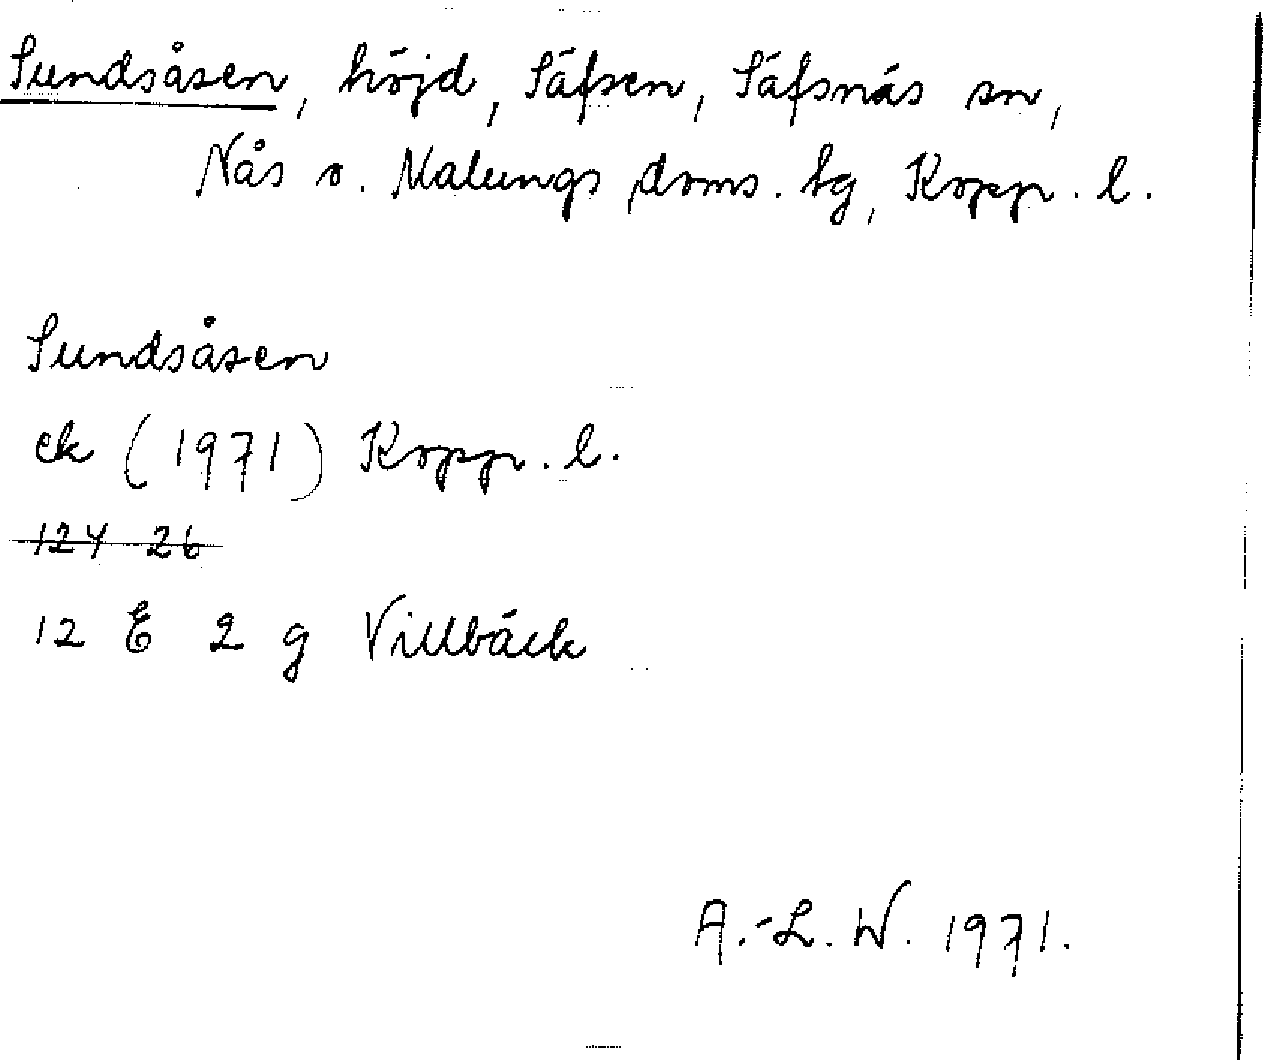 Sundsåsen, höjd, Säfsen, Säfsnäs sn,
Nås o. Malungs doms. tg, Kopp. l.
Sundsåsen
ek (1971) Kopp. l.
124 26
12 E 2 g Villbäck
A.-L. W. 1971.